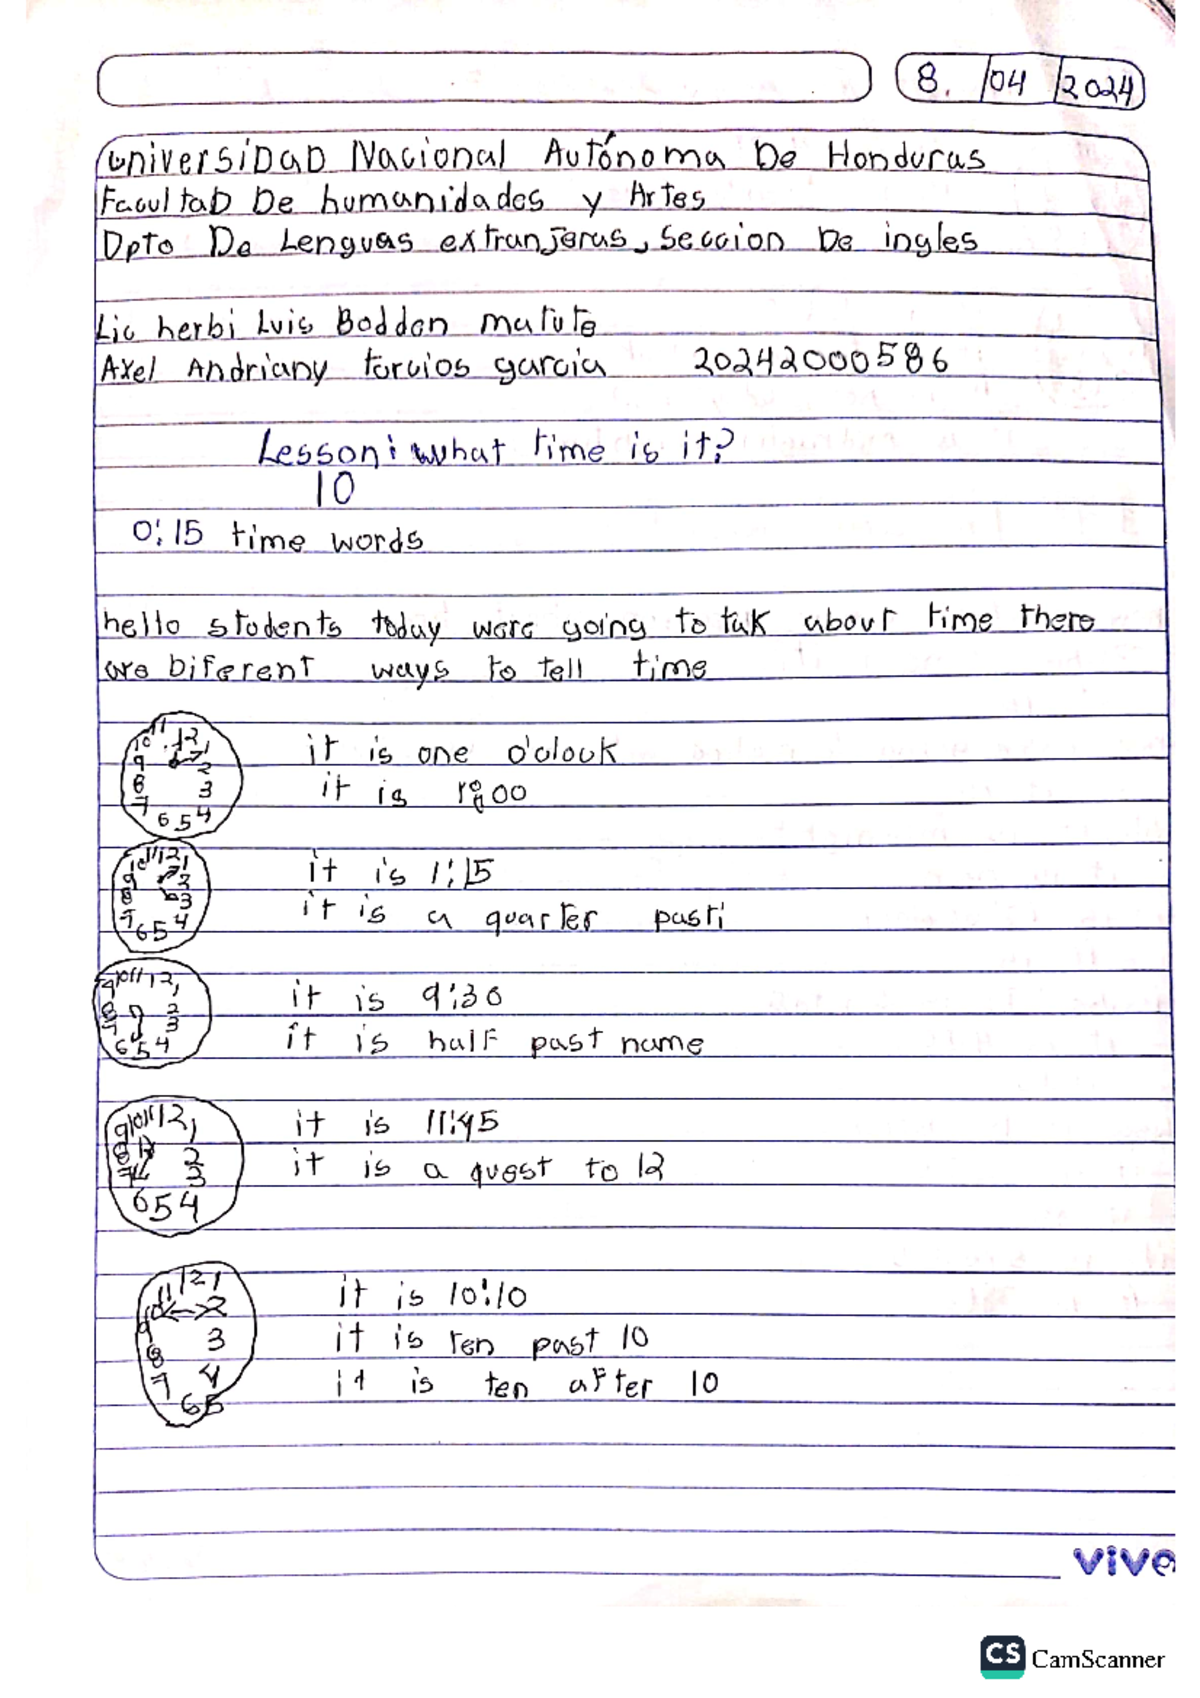 8. /04 /2024
universiDaD Nacional Autónoma De Honduras
FacultaD De humanidades y Artes
Dpto De Lenguas extranjeras, Seccion De ingles
Lic herbi Luis Boddon matute
Axel Andriany torcios garcia 20242000586
Lesson: what time is it?
10
0:15 time words
hello students today were going to tak about time there
are biferent ways to tell time
it is one o'clock
it is 1:00
it is 1:15
it is a quarter past 1
it is 9:30
it is half past name
it is 11:45
it is a quest to 12
it is 10:10
it is ten past 10
it is ten after 10
vive
CS CamScanner